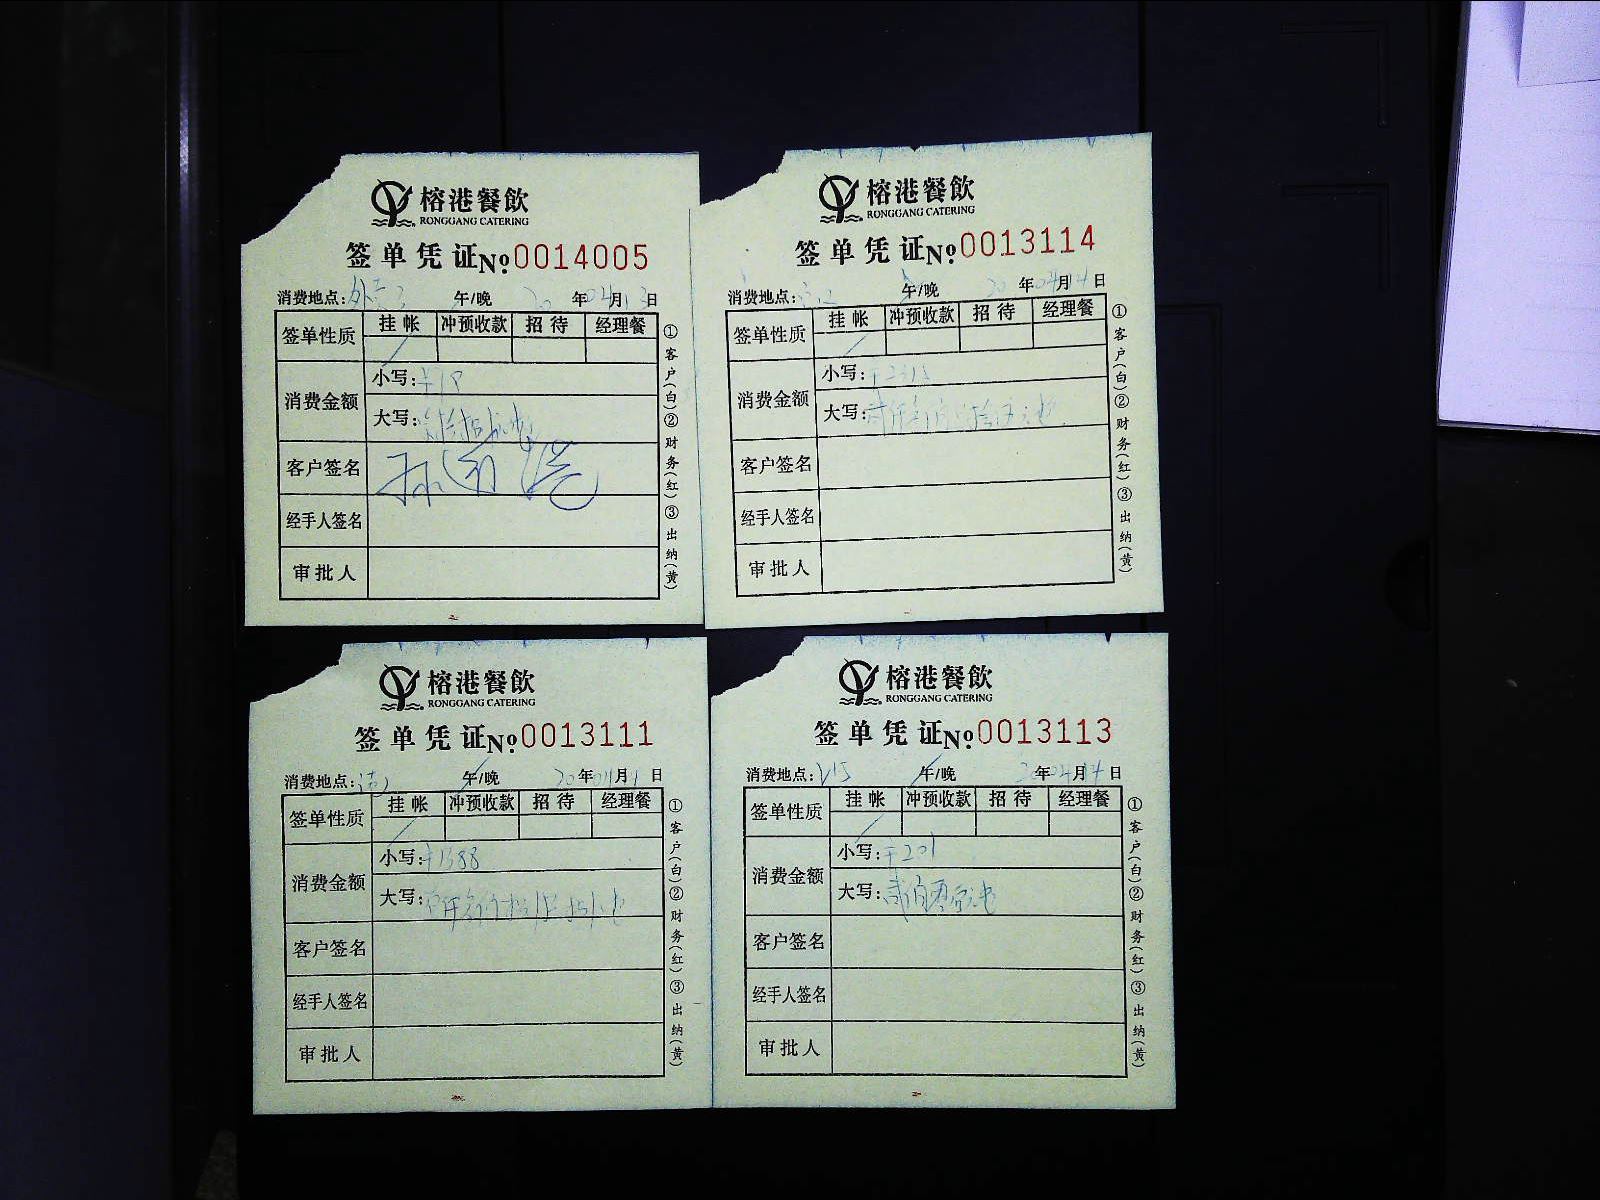 榕港餐飲
RONGGANG CATERING
签单凭证 №0014005
消费地点: 午/晚 20年04月13日
签单性质 挂帐 冲预收款 招待 经理餐
消费金额 小写:
大写:
客户签名
经手人签名
审批人
①客户(白)②财务(红)③出纳(黄)
榕港餐飲
RONGGANG CATERING
签单凭证 №0013114
消费地点: 午/晚 20年04月14日
签单性质 挂帐 冲预收款 招待 经理餐
消费金额 小写:
大写:
客户签名
经手人签名
审批人
①客户(白)②财务(红)③出纳(黄)
榕港餐飲
RONGGANG CATERING
签单凭证 №0013111
消费地点: 午/晚 20年月日
签单性质 挂帐 冲预收款 招待 经理餐
消费金额 小写:¥1388
大写:
客户签名
经手人签名
审批人
①客户(白)②财务(红)③出纳(黄)
榕港餐飲
RONGGANG CATERING
签单凭证 №0013113
消费地点:V15 午/晚 20年04月14日
签单性质 挂帐 冲预收款 招待 经理餐
消费金额 小写:¥201
大写:贰佰零壹元
客户签名
经手人签名
审批人
①客户(白)②财务(红)③出纳(黄)